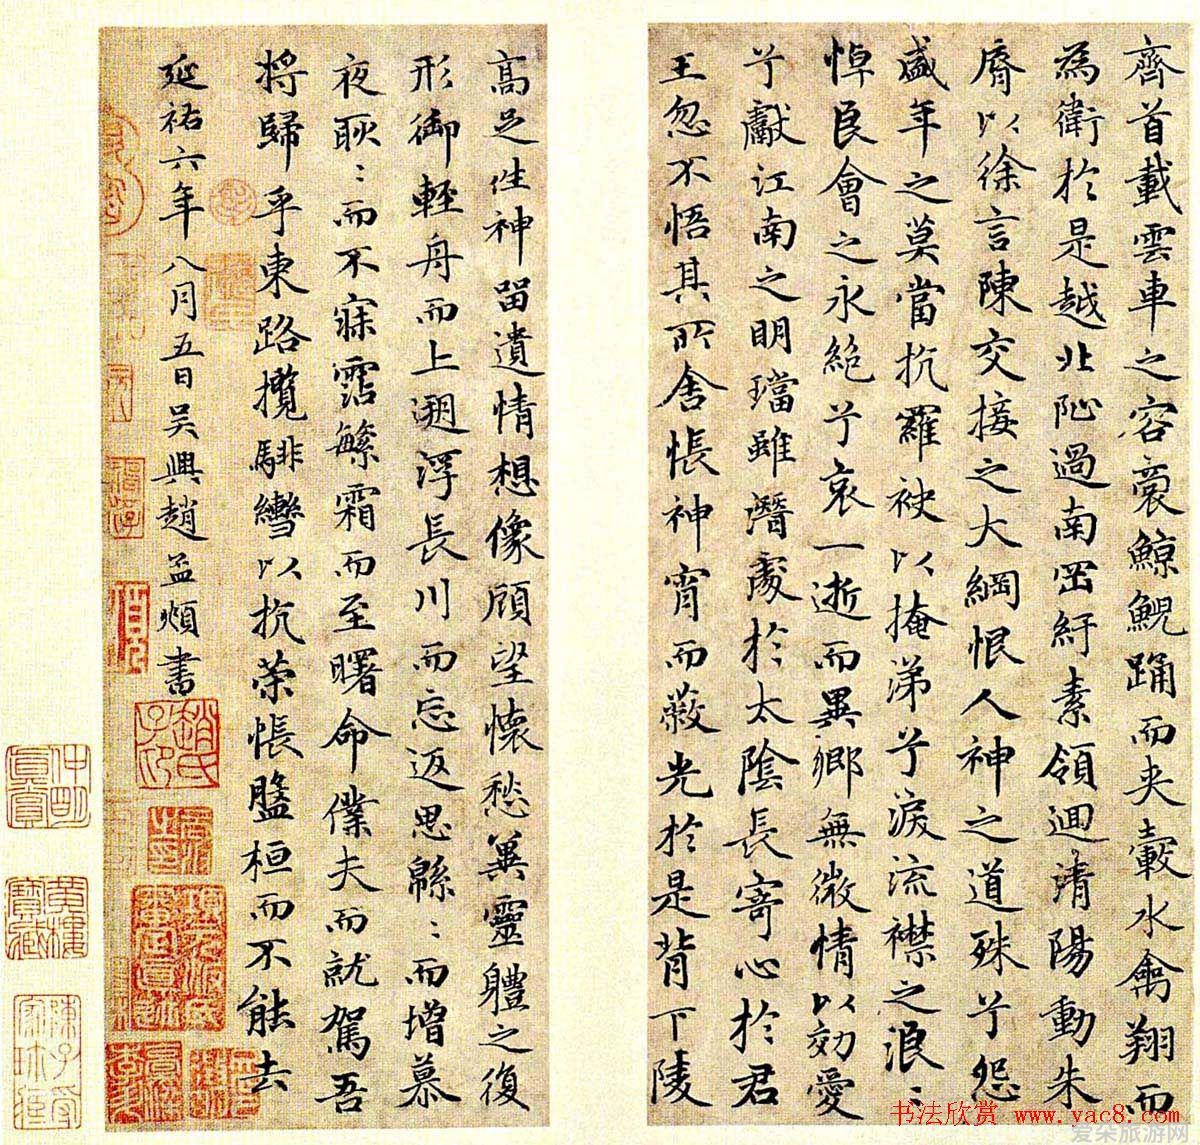 齊首載雲車之容裔鯨鯢踊而夾轂水禽翔而
為衛於是越北沚過南岡紆素領迴清陽動朱
脣以徐言陳交接之大綱恨人神之道殊兮怨
盛年之莫當抗羅袂以掩涕兮淚流襟之浪〻
悼良會之永絕兮哀一逝而異鄉無微情以効愛
兮獻江南之明璫雖潛處於太陰長寄心於君
王忽不悟其所舍悵神宵而蔽光於是背下陵
高足往神留遺情想像顧望懷愁冀靈軆之復
形御輕舟而上遡浮長川而忘返思緜〻而增慕
夜耿〻而不寐霑繁霜而至曙命僕夫而就駕吾
將歸乎東路攬騑轡以抗策悵盤桓而不能去
延祐六年八月五日吳興趙孟頫書
趙氏子印
书法欣赏 www.yac8.com
爱朵旅游网